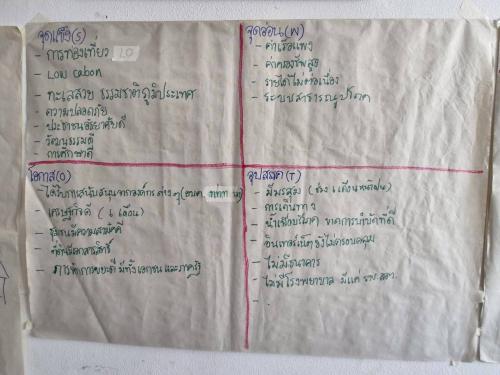 จุดแข็ง(S)
- การท่องเที่ยว
- Low carbon
- ทะเลสวย ธรรมชาติภูมิประเทศ
- ความปลอดภัย
- ประชาชนอัธยาศัยดี
- วัฒนธรรมดี
- การศึกษาดี
จุดอ่อน(W)
- ค่าเรือแพง
- ค่าครองชีพสูง
- รายได้ไม่ต่อเนื่อง
- ระบบสาธารณูปโภค
โอกาส(O)
- ได้รับการสนับสนุนจากองค์กรต่างๆ
- เศรษฐกิจดี ( 6 เดือน)
- ชุมชนมีความสามัคคี
- ที่ดินมีเอกสารสิทธิ์
- การจัดการขยะดี มีทั้งเอกชนและภาครัฐ
อุปสรรค(T)
- มีมรสุม
- การเดินทาง
- น้ำเพื่อบริโภค ขาดการบำบัดที่ดี
- อินเตอร์เน็ตยังไม่ครอบคลุม
- ไม่มีธนาคาร
- ไม่มีโรงพยาบาล มีแค่ รพ.สต.